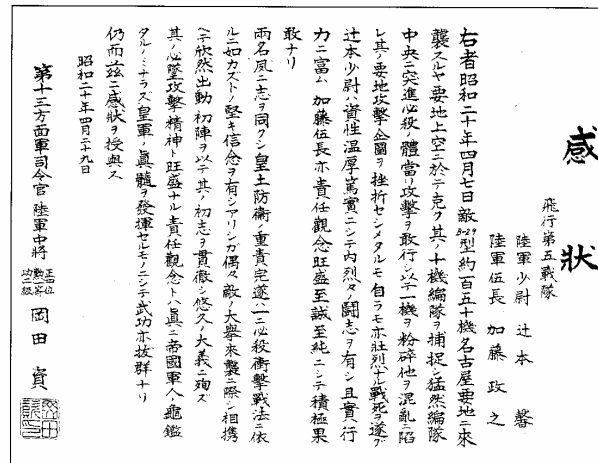 感状
飛行第五戦隊
陸軍少尉 辻本 馨
陸軍伍長 加藤政之
右者昭和二十年四月七日敵B-29型約一百五十機名古屋要地ニ來
襲スルヤ要地上空ニ於テ克ク其ノ十機編隊ヲ捕捉シ猛然編隊
中央ニ突進必殺ノ體當リ攻擊ヲ敢行シ以テ一機ヲ粉碎他ヲ混亂ニ陷
レ其ノ要地攻擊企圖ヲ挫折セシメタルモ自ラモ亦壯烈ナル戰死ヲ遂グ
辻本少尉ハ資性温厚篤實ニシテ内烈々ノ鬪志ヲ有シ且實行
力ニ富ム 加藤伍長亦責任觀念旺盛至誠至純ニシテ積極果
敢ナリ
兩名夙ニ志ヲ同クシ皇土防衞ノ重責完遂ハ一ニ必殺衝擊戰法ニ依
ルニ如カズトノ堅キ信念ヲ有シアリシガ偶々敵ノ大擧來襲ニ際シ相携
ヘテ欣然出動 初陣ヲ以テ其ノ初志ヲ貫徹シ悠久ノ大義ニ殉ズ
其ノ心墜攻擊精神ト旺盛ナル責任觀念トハ眞ニ帝國軍人ノ龜鑑
タルノミナラズ皇軍ノ眞髓ヲ發揮セルモノニシテ武功亦抜群ナリ
仍而茲ニ感狀ヲ授與ス
昭和二十年四月二十九日
第十三方面軍司令官 陸軍中將 正四位 勲二等 功三級 岡田 資